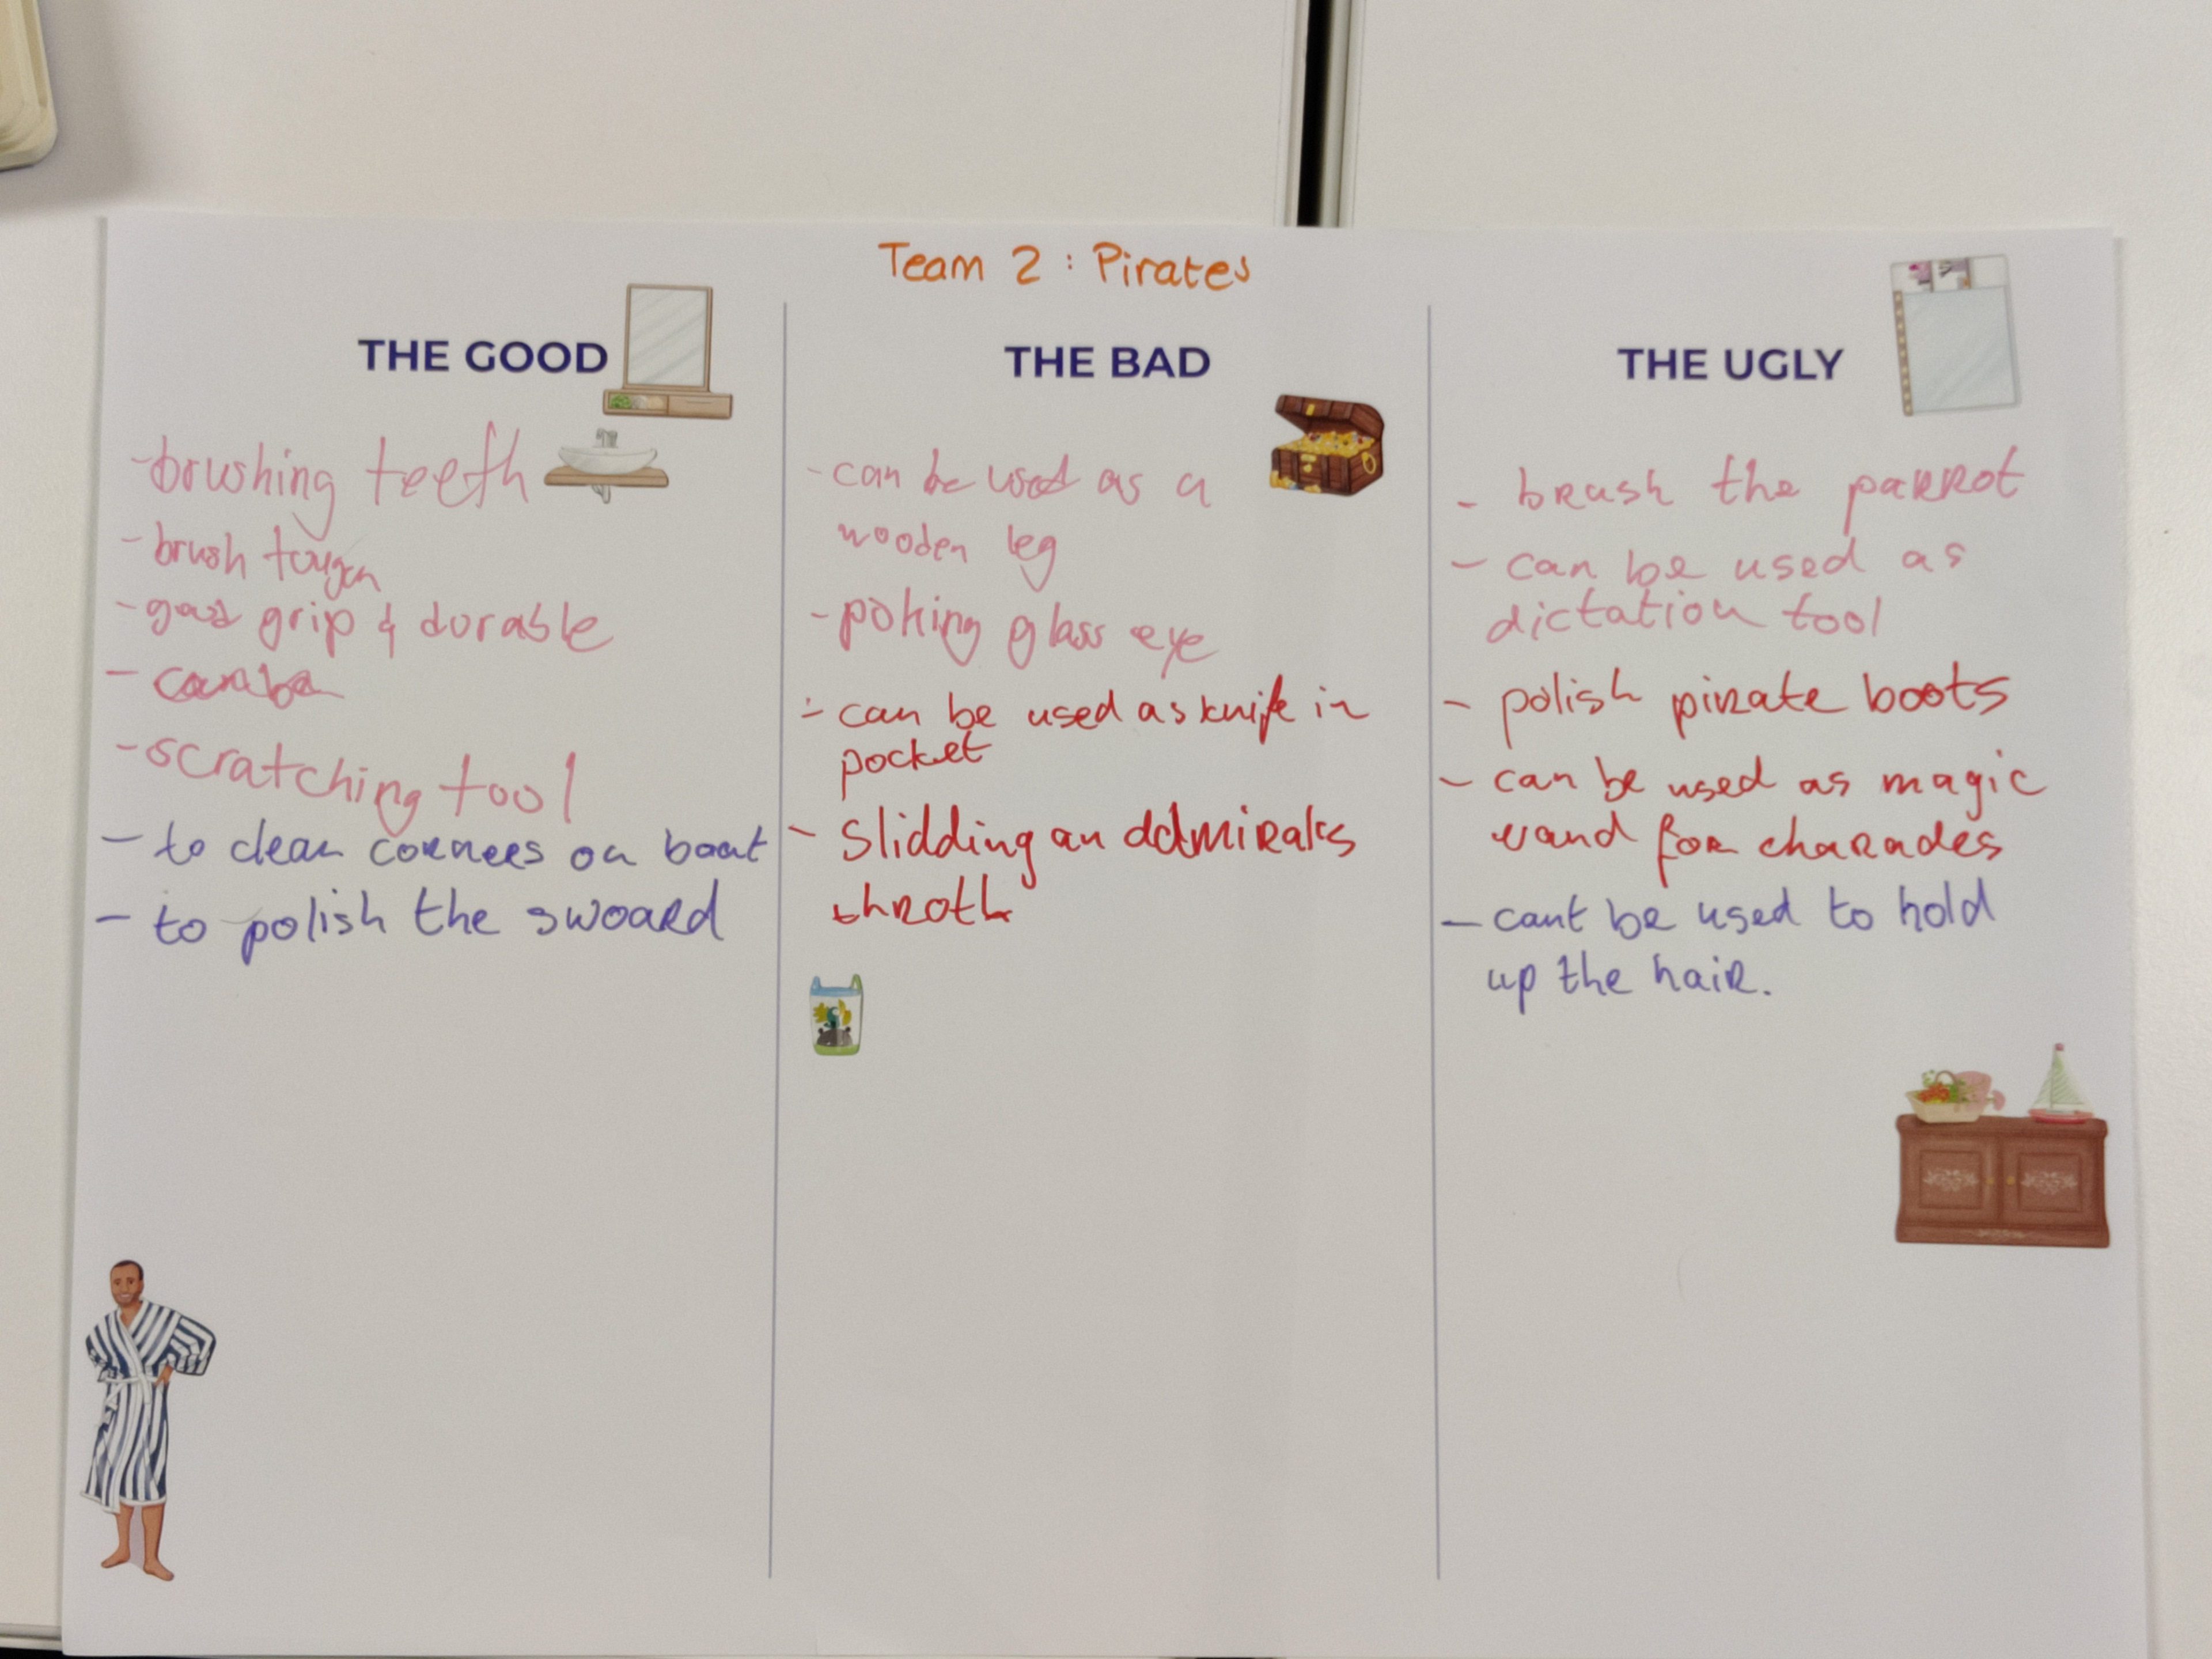 Team 2 : Pirates
THE GOOD
- brushing teeth
- brush tougn
- good grip & durable
- can be
- scratching tool
- to clean corners on boat
- to polish the swoard
THE BAD
- can be used as a
wooden leg
- poking glass eye
- can be used as knife in
pocket
- Slidding an admirals
throth
THE UGLY
- brush the parrot
- can be used as
dictation tool
- polish pirate boots
- can be used as magic
wand for charades
- cant be used to hold
up the hair.